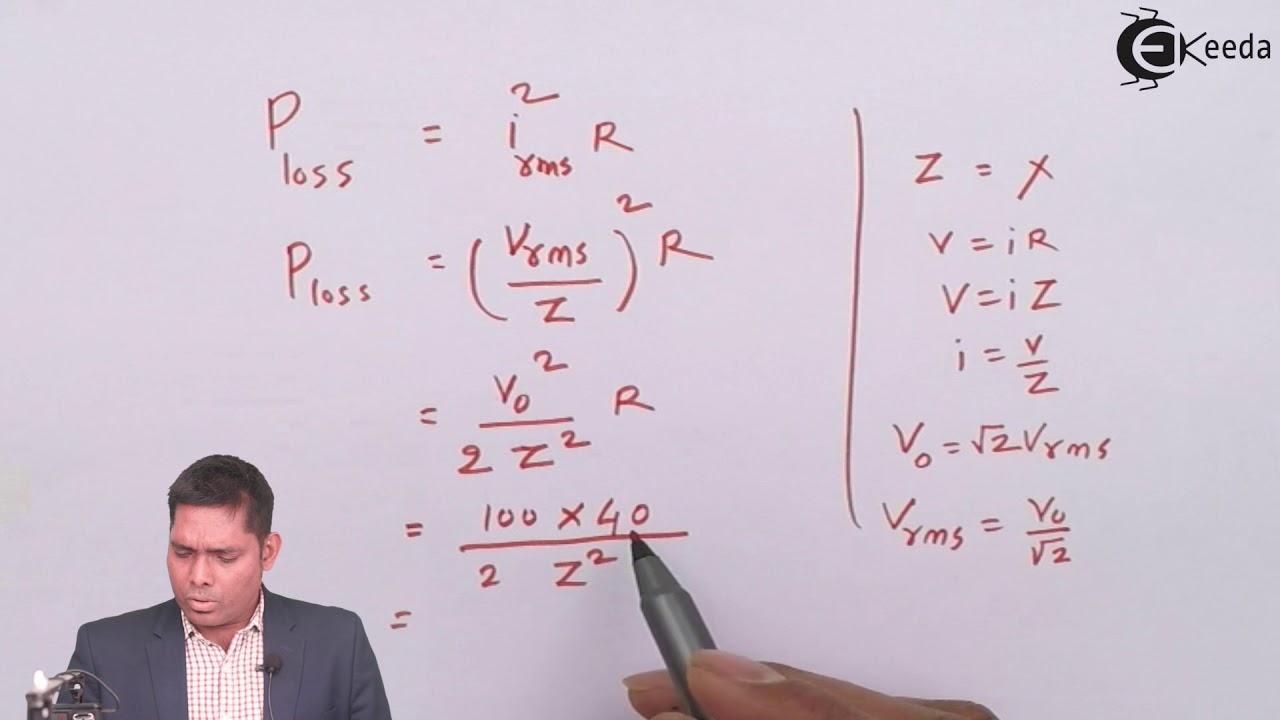 Keeda
P_loss = i_rms² R
P_loss = (V_rms / Z)² R
= V₀² / 2 Z² R
= 100 × 40 / 2 Z²
=
Z = X
V = i R
V = i Z
i = V / Z
V₀ = √2 V_rms
V_rms = V₀ / √2